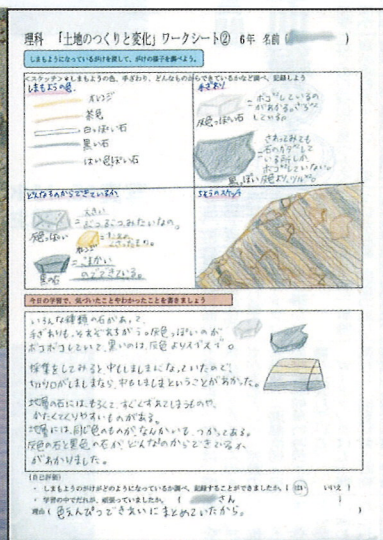 理科 「土地のつくりと変化」ワークシート② 6年 名前(
しまもようになっているがけを探して、がけの様子を調べよう。
<スケッチ>★しまもようの色、手ざわり、どんなものからできているかなど調べ、記録しよう
しまもようの色
オレンジ
茶色
白っぽい石
黒い石
はい色っぽい石
手ざわり
灰色っぽい石
黒っぽい
どんなものからできているか
大きい
つぶつぶみたいなの。
灰色っぽい
黒の石
こまかい
のでできている。
今日の学習で、気づいたことやわかったことを書きましょう
いろんな種類の石があって、
手ざわりも、それぞれちがう。灰色っぽいのが
ボコボコしていて、黒いのは、灰色よりスベスベ。
採集をしてみると中もしましまになっていたので、
切り口がしましまなら、中もしましまということが分かった。
地層の石には、もろくて、すぐくずれてしまうものや、
かたくてくりやすいものがある。
地層には、同じ色のものが、なんかいも、つかってある。
灰色の石と黒色の石が、どんなのからできているか
がわかりました。
(自己評価)
・しまもようのがけがどのようになっているか調べ、記録することができましたか。( はい いいえ )
・学習の中でだれが、頑張っていましたか。( さん )
理由( 色えんぴつできれいにまとめていたから。